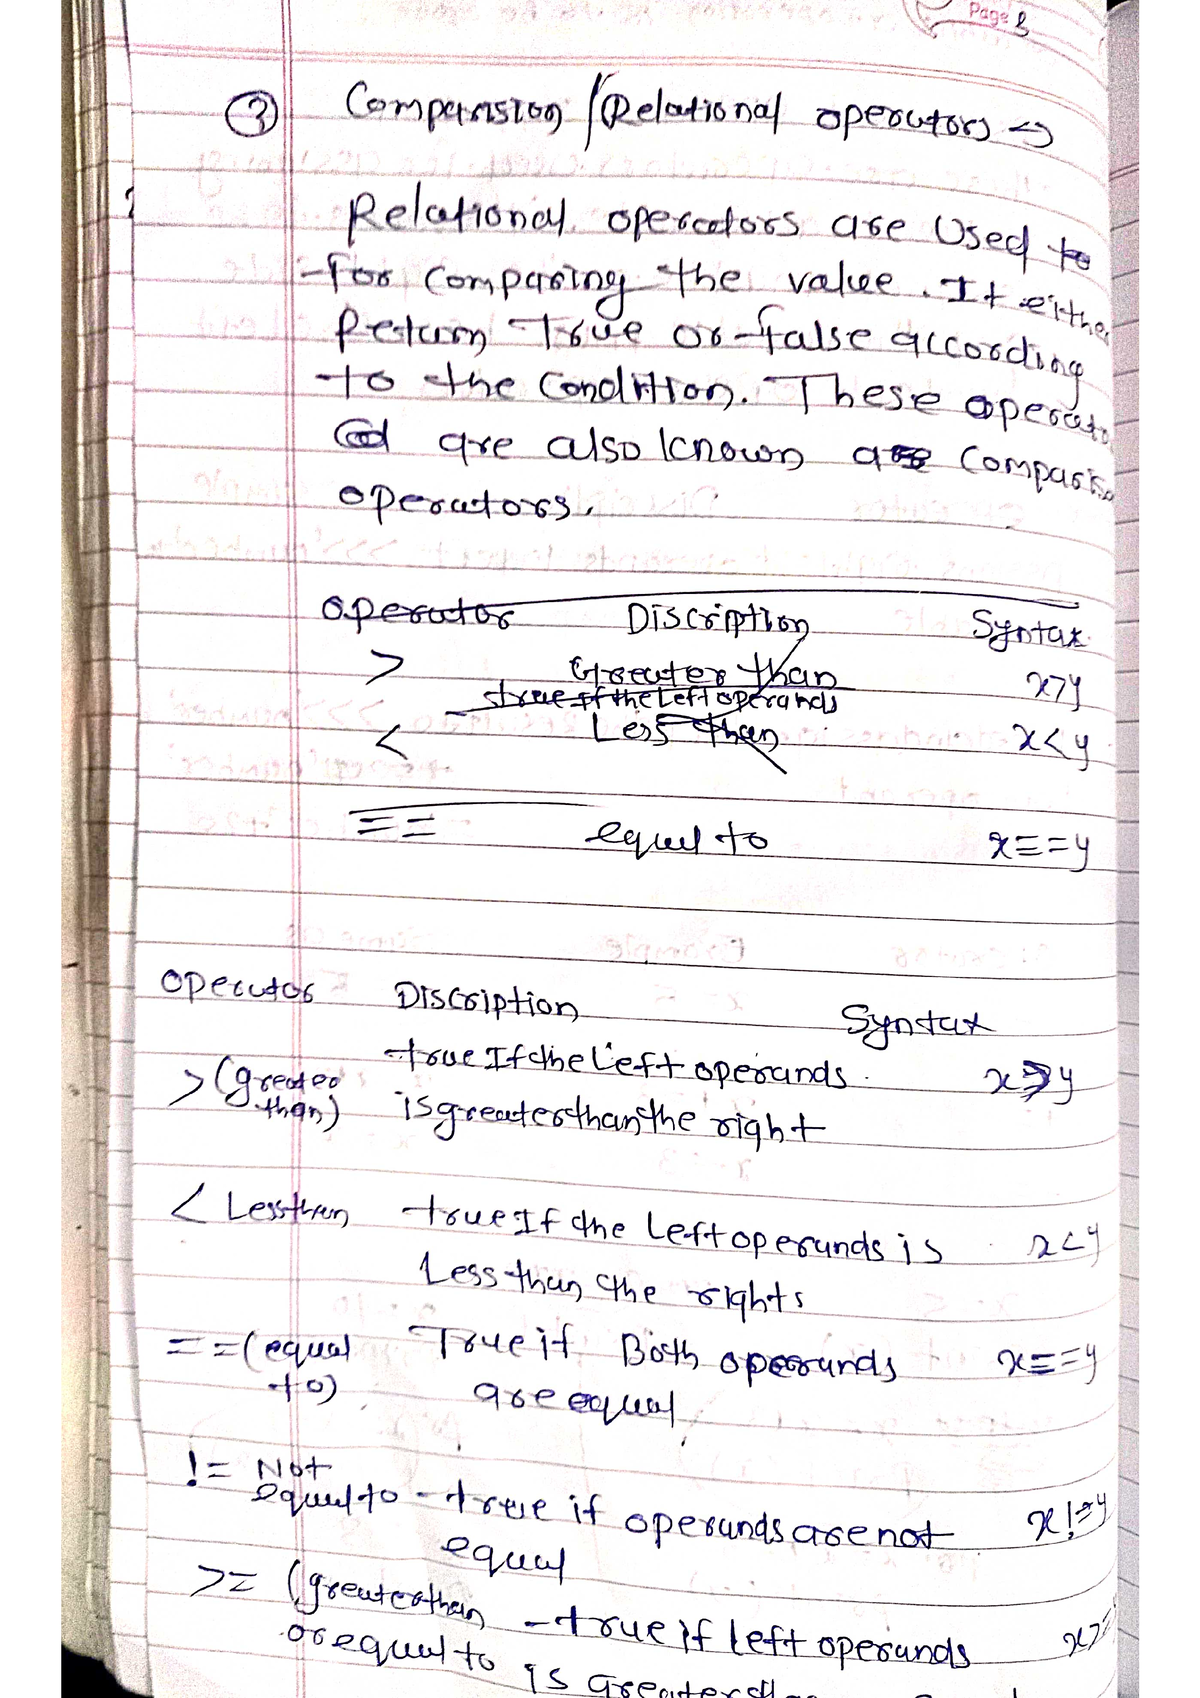 Page 3
③ Comparision / Relational operators →
Relational operators are Used to
for comparing the value. It either
Return True or false according
to the Condition. These operato
are also known as Comparis
operators.
operator Discription Syntax
> Greater than x>y
true if the Left operands
< Less than x<y
== equal to x==y
operator Discription Syntax
> (greater than) true If the Left operands x>y
is greater than the right
< Less than true If the Left operands is x<y
Less than the rights
== (equal to) True if Both operands x==y
are equal
!= Not equal to - true if operands are not x!=y
equal
>= (greater than - true if left operands x>=
or equal to is Greater